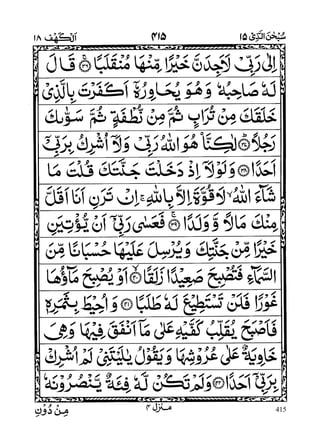 سُبْحٰنَ الَّذِىْٓ ١٥ ٤١٥ اَلْكَهْف ١٨
اِلٰى رَبِّىْ لَاَجِدَنَّ خَيْرًا مِّنْهَا مُنْقَلَبًا ۝٣٦ قَالَ
لَهٗ صَاحِبُهٗ وَهُوَ يُحَاوِرُهٗٓ اَكَفَرْتَ بِالَّذِىْ
خَلَقَكَ مِنْ تُرَابٍ ثُمَّ مِنْ نُّطْفَةٍ ثُمَّ سَوّٰىكَ
رَجُلًا ۝٣٧ لٰكِنَّا۠ هُوَ اللّٰهُ رَبِّىْ وَلَاۤ اُشْرِكُ بِرَبِّىْٓ
اَحَدًا ۝٣٨ وَلَوْلَاۤ اِذْ دَخَلْتَ جَنَّتَكَ قُلْتَ مَا
شَآءَ اللّٰهُ ۙ لَا قُوَّةَ اِلَّا بِاللّٰهِ ۚ اِنْ تَرَنِ اَنَا اَقَلَّ
مِنْكَ مَالًا وَّوَلَدًا ۝٣٩ فَعَسٰى رَبِّىْٓ اَنْ يُّؤْتِيَنِ
خَيْرًا مِّنْ جَنَّتِكَ وَيُرْسِلَ عَلَيْهَا حُسْبَانًا مِّنَ
السَّمَآءِ فَتُصْبِحَ صَعِيْدًا زَلَقًا ۝٤٠ اَوْ يُصْبِحَ مَآؤُهَا
غَوْرًا فَلَنْ تَسْتَطِيْعَ لَهٗ طَلَبًا ۝٤١ وَاُحِيْطَ بِثَمَرِهٖ
فَاَصْبَحَ يُقَلِّبُ كَفَّيْهِ عَلٰى مَاۤ اَنْفَقَ فِيْهَا وَهِىَ
خَاوِيَةٌ عَلٰى عُرُوْشِهَا وَيَقُوْلُ يٰلَيْتَنِىْ لَمْ اُشْرِكْ
بِرَبِّىْٓ اَحَدًا ۝٤٢ وَلَمْ تَكُنْ لَّهٗ فِئَةٌ يَّنْصُرُوْنَهٗ
مِنْ دُوْنِ منزل ٤ 415